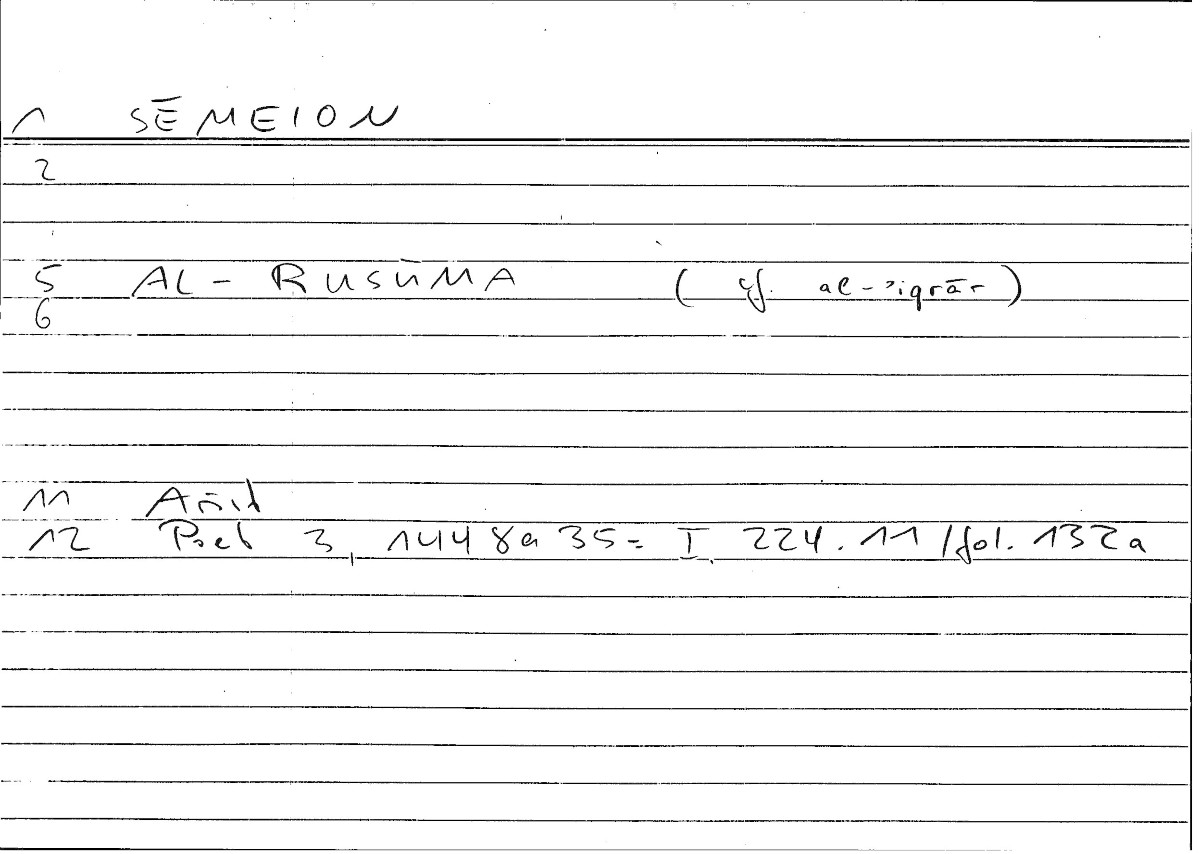 1 SĒMEION
2
5 AL-RUSŪMA (cf. al-ʾiqrār)
6
11 Arist
12 Poet 3, 1448a 35 = I, 224.11 / fol. 132a